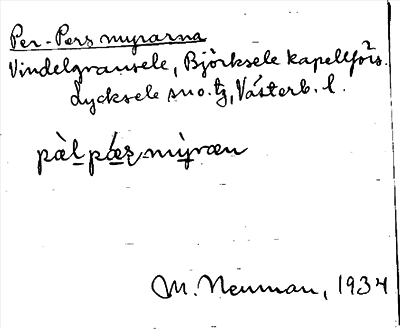 Per-Persmyrarna
Vindelgransele, Björksele kapellförs.
Lycksele sn o. tg, Västerb. l.
pàl pæṣ mỳræn
M. Neuman, 1934